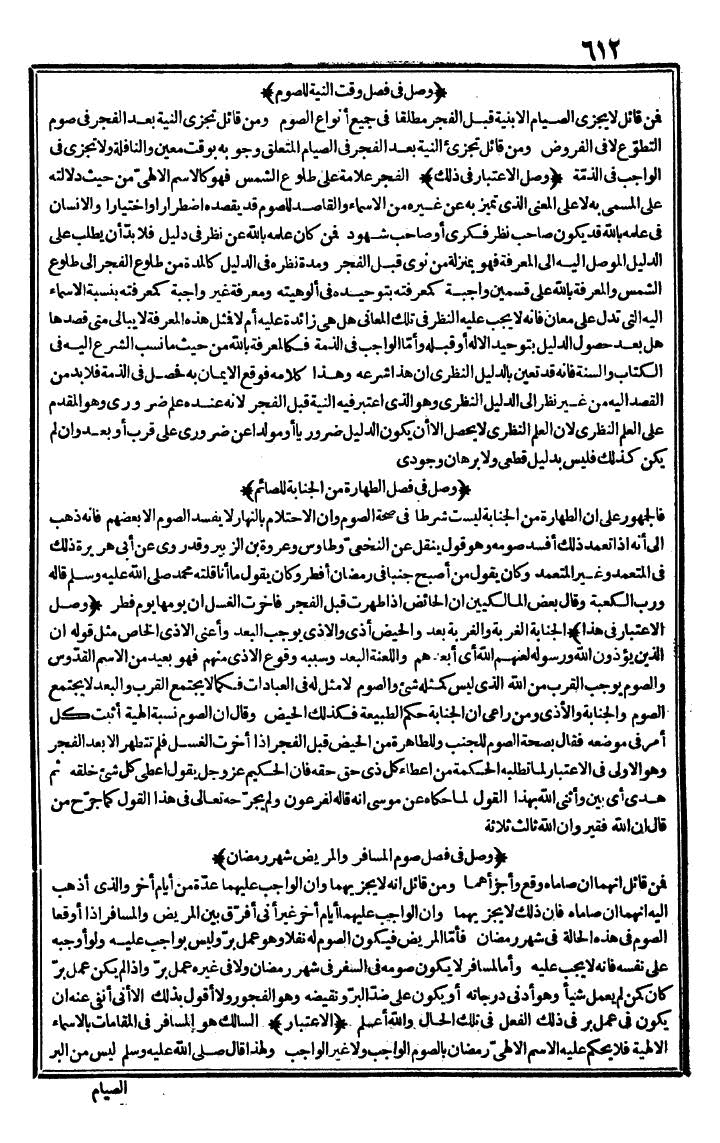 ٦١٢
﴿وصل فى فصل وقت النية للصوم﴾
فمن قائل لا يجزى الصيام الا بنية قبل الفجر مطلقا فى جميع أنواع الصوم ومن قائل تجزى النية بعد الفجر فى صوم
التطوّع لا فى الفروض ومن قائل تجزئ النية بعد الفجر فى الصيام المتعلق وجوبه بوقت معين والنافلة ولا تجزى فى
الواجب فى الذمّة ﴿وصل الاعتبار فى ذلك﴾ الفجر علامة على طلوع الشمس فهو كالاسم الالهىّ من حيث دلالته
على المسمى به لا على المعنى الذى تميز به عن غيره من الاسماء والقاصد للصوم قد يقصده اضطرارا واختيارا والانسان
فى علمه بالله قد يكون صاحب نظر فكرى أو صاحب شهود فمن كان علمه بالله عن نظر فى دليل فلا بدّ أن يطلب على
الدليل الموصل اليه الى المعرفة فهو بمنزلة من نوى قبل الفجر ومدة نظره فى الدليل كالمدة من طلوع الفجر الى طلوع
الشمس والمعرفة بالله على قسمين واجبة كمعرفته بتوحيده فى ألوهيته ومعرفة غير واجبة كمعرفته بنسبة الاسماء
اليه التى تدل على معان فانه لا يجب عليه النظر فى تلك المعانى هل هى زائدة عليه أم لا فمثل هذه المعرفة لا يبالى متى قصدها
هل بعد حصول الدليل بتوحيد الاله أو قبله وأمّا الواجب فى الذمة فكالمعرفة بالله من حيث ما نسب الشرع اليه فى
الكتاب والسنة فانه قد تعين بالدليل النظرى ان هذا شرعه وهذا كلامه فوقع الايمان به فحصل فى الذمة فلا بد من
القصد اليه من غير نظر الى الدليل النظرى وهو الذى اعتبر فيه النية قبل الفجر لانه عنده علم ضرورى وهو المقدم
على العلم النظرى لان العلم النظرى لا يحصل الا أن يكون الدليل ضروريا أو مولدا عن ضرورى على قرب أو بعد وان لم
يكن كذلك فليس بدليل قطعى ولا برهان وجودى
﴿وصل فى فصل الطهارة من الجنابة للصائم﴾
فالجمهور على ان الطهارة من الجنابة ليست شرطا فى صحة الصوم وان الاحتلام بالنهار لا يفسد الصوم الا بعضهم فانه ذهب
الى أنه اذا تعمد ذلك أفسد صومه وهو قول ينقل عن النخعىّ وطاوس وعروة بن الزبير وقد روى عن أبى هريرة ذلك
فى المتعمد وغير المتعمد وكان يقول من أصبح جنبا فى رمضان أفطر وكان يقول ما أنا قلته محمد صلى الله عليه وسلم قاله
ورب الكعبة وقال بعض المالكيين ان الحائض اذا طهرت قبل الفجر فاخرت الغسل ان يومها يوم فطر ﴿وصل
الاعتبار فى هذا﴾ الجنابة الغربة والغربة بعد والحيض أذى والاذى يوجب البعد وأعنى الاذى الخاص مثل قوله ان
الذين يؤذون الله ورسوله لعنهم الله أى أبعدهم واللعنة البعد وسببه وقوع الاذى منهم فهو بعيد من الاسم القدّوس
والصوم يوجب القرب من الله الذى ليس كمثله شئ والصوم لا مثل له فى العبادات فكما لا يجتمع القرب والبعد لا يجتمع
الصوم والجنابة والأذى ومن راعى ان الجنابة حكم الطبيعة فكذلك الحيض وقال ان الصوم نسبة الهية أثبت كل
أمر فى موضعه فقال بصحة الصوم للجنب وللطاهرة من الحيض قبل الفجر اذا أخرت الغسل فلم تتطهر الا بعد الفجر
وهو الاولى فى الاعتبار لما تطلبه الحكمة من اعطاء كل ذى حق حقه فان الحكيم عز وجل يقول اعطى كل شئ خلقه ثم
هدى أى بين وأثنى الله بهذا القول لما حكاه عن موسى انه قاله لفرعون ولم يجرّحه تعالى فى هذا القول كما جرّح من
قال ان الله فقير وان الله ثالث ثلاثة
﴿وصل فى فصل صوم المسافر والمريض شهر رمضان﴾
فمن قائل انهما ان صاماه وقع وأجزأهما ومن قائل انه لا يجزيهما وان الواجب عليهما عدّة من أيام أخر والذى أذهب
اليه انهما ان صاماه فان ذلك لا يجزيهما وان الواجب عليهما أيام أخر غير أنى أفرّق بين المريض والمسافر اذا أوقعا
الصوم فى هذه الحالة فى شهر رمضان فأمّا المريض فيكون الصوم له نفلا وهو عمل برّ وليس بواجب عليه ولو أوجبه
على نفسه فانه لا يجب عليه وأما المسافر لا يكون صومه فى السفر فى شهر رمضان ولا فى غيره عمل برّ واذا لم يكن عمل برّ
كان كمن لم يعمل شيأ وهو أدنى درجاته أو يكون على ضدّ البرّ ونقيضه وهو الفجور ولا أقول بذلك الا أنى أنفى عنه ان
يكون فى عمل بر فى ذلك الفعل فى تلك الحال والله أعلم ﴿الاعتبار﴾ السالك هو المسافر فى المقامات بالاسماء
الالهية فلا يحكم عليه الاسم الالهىّ رمضان بالصوم الواجب ولا غير الواجب ولهذا قال صلى الله عليه وسلم ليس من البر
الصيام